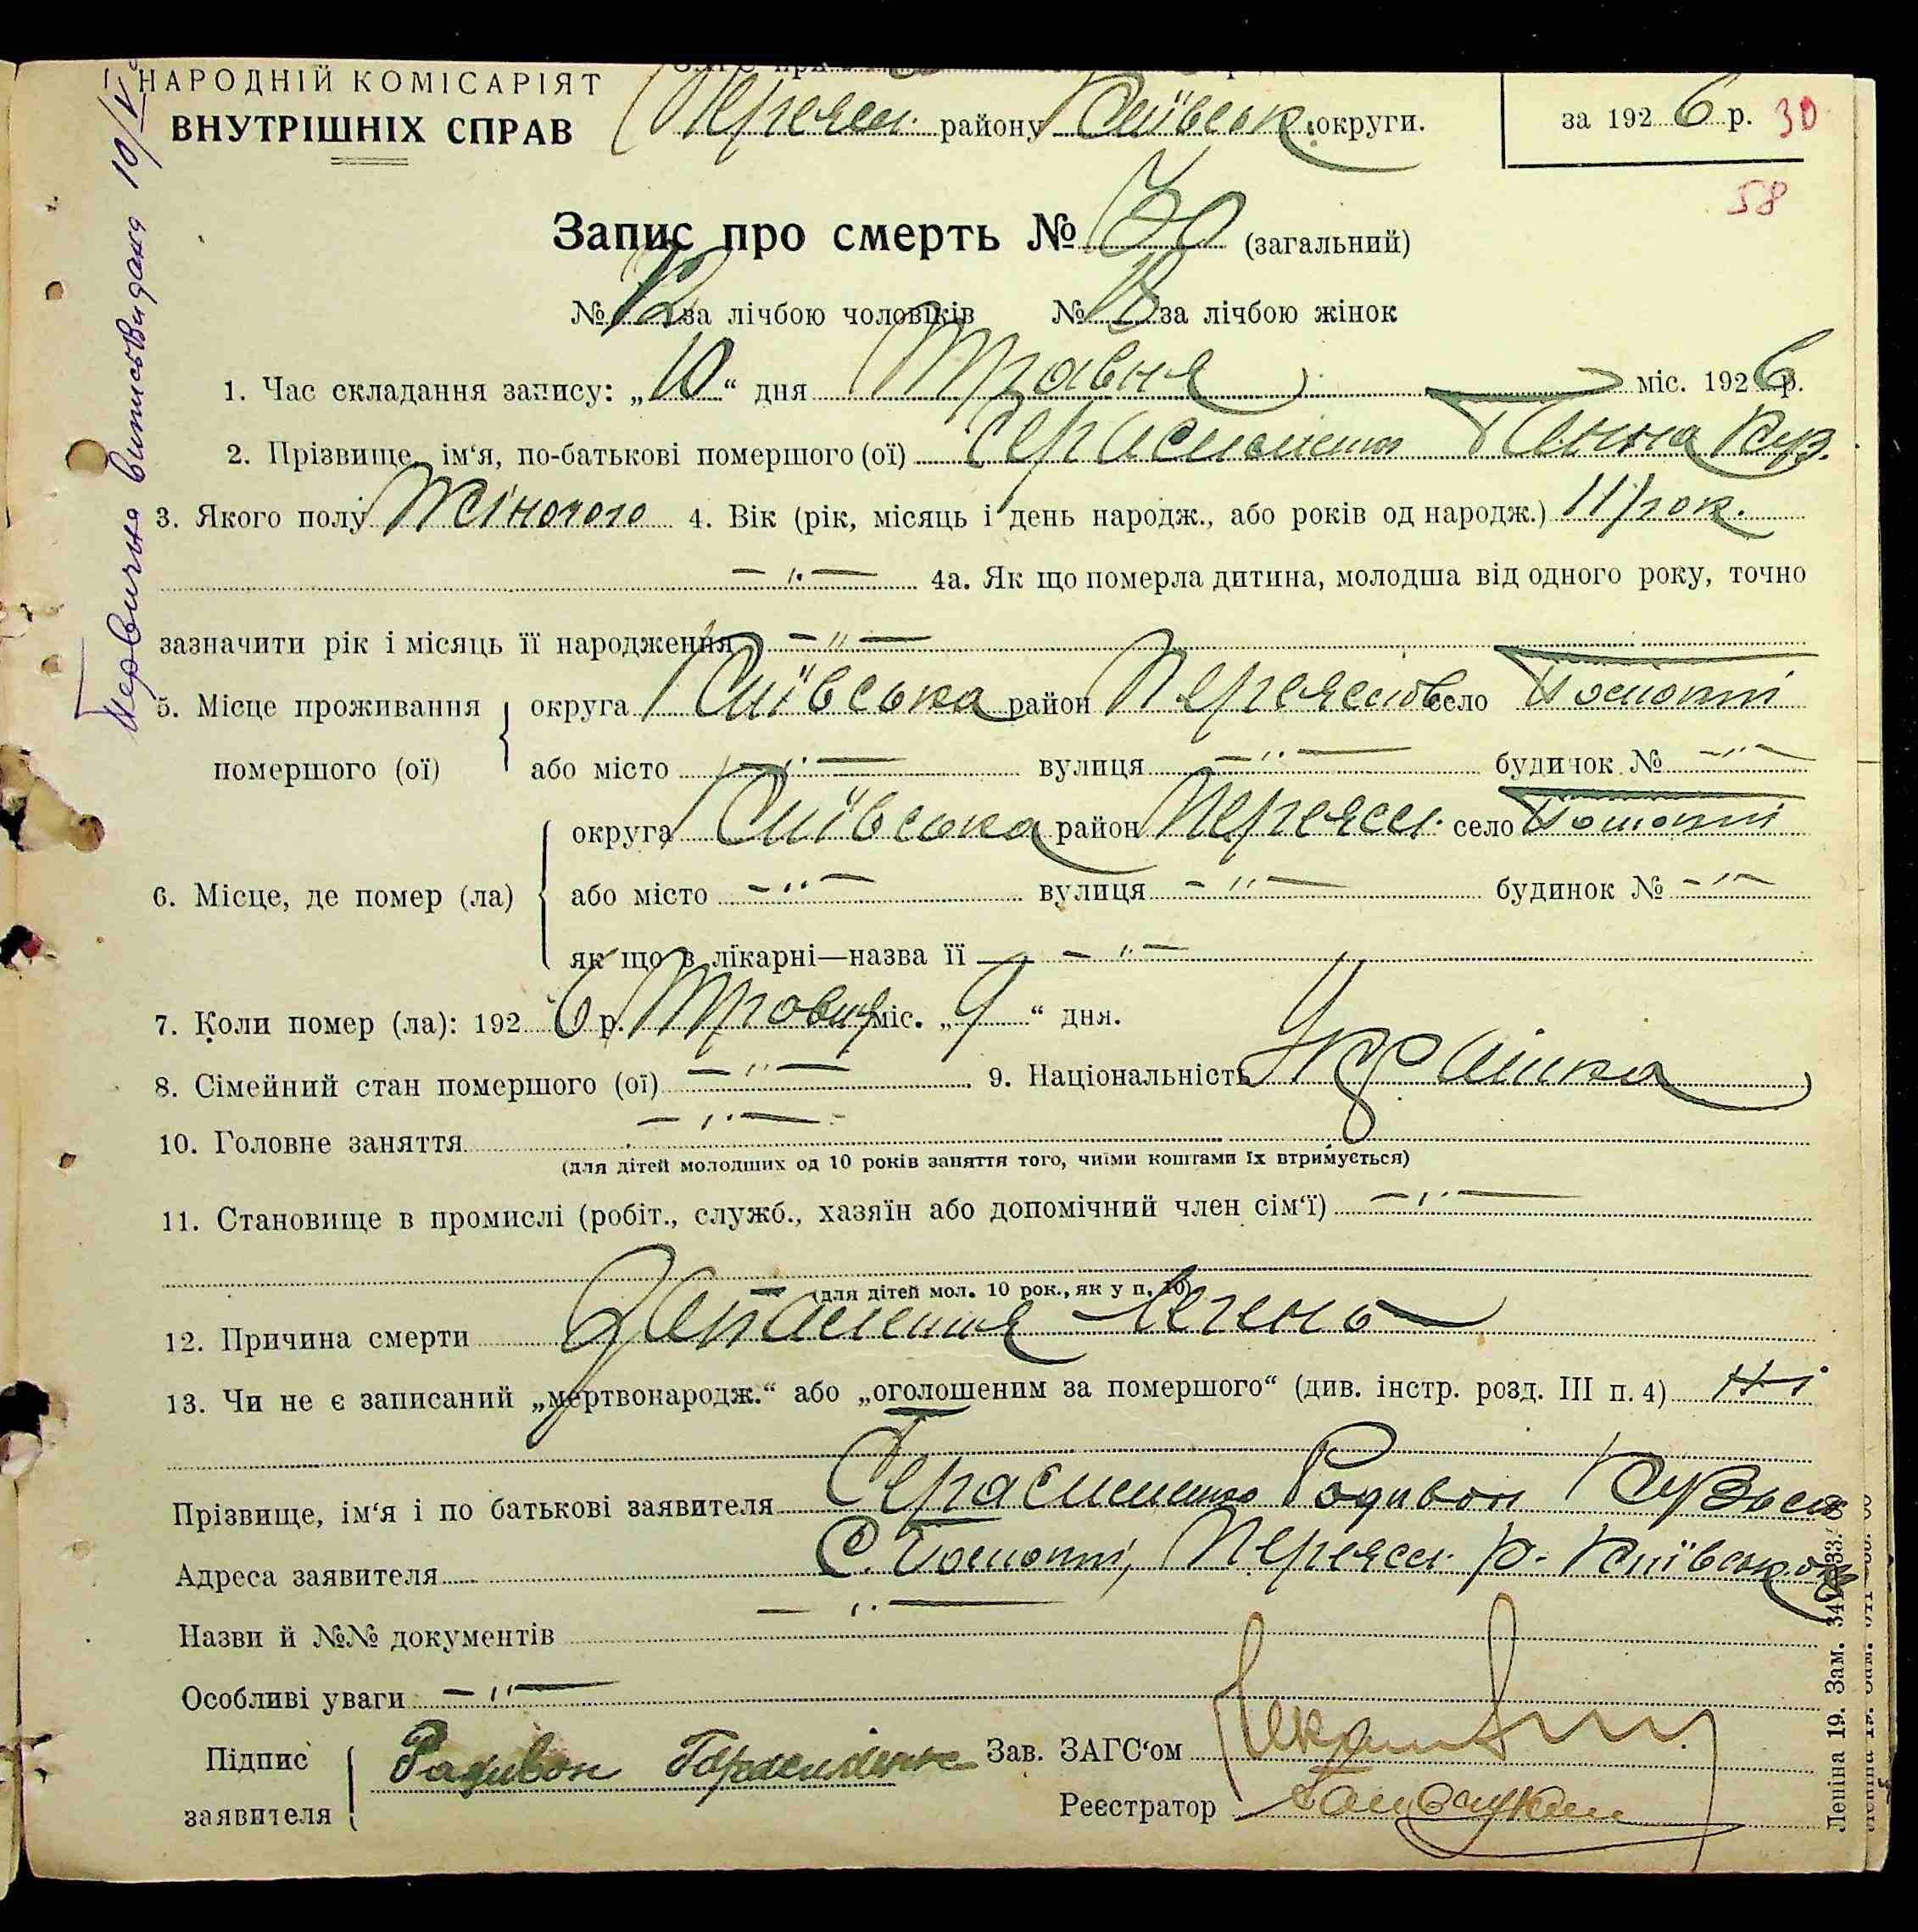 НАРОДНІЙ КОМІСАРІЯТ
ВНУТРІШНІХ СПРАВ
Переясл. району Київськ. округи.
за 1926 р. 30
58
Первичну випись видана 10/V
Запис про смерть № 30 (загальний)
№ 12 за лічбою чоловіків № 18 за лічбою жінок
1. Час складання запису: „10“ дня Травня міс. 1926 р.
2. Прізвище, ім‘я, по-батькові помершого (ої) Герасименко Ганна Куз.
3. Якого полу Жіночого 4. Вік (рік, місяць і день народж., або років од народж.) 11 рок.
— „ — 4а. Як що померла дитина, молодша від одного року, точно
зазначити рік і місяць її народження — „ —
5. Місце проживання помершого (ої) округа Київська район Переяслов село Помоклі
або місто — „ — вулиця — „ — будинок № — „ —
6. Місце, де помер (ла) округа Київська район Переясл. село Помоклі
або місто — „ — вулиця — „ — будинок № — „ —
як що в лікарні—назва її — „ —
7. Коли помер (ла): 1926 р. Травня міс. „9“ дня.
8. Сімейний стан помершого (ої) — „ — 9. Національність Українка
10. Головне заняття — „ —
(для дітей молодших од 10 років заняття того, чиїми коштами їх втримується)
11. Становище в промислі (робіт., служб., хазяїн або допомічний член сім‘ї) — „ —
(для дітей мол. 10 рок., як у п. 10)
12. Причина смерти Запалення легень
13. Чи не є записаний „мертвонародж.“ або „оголошеним за помершого“ (див. інстр. розд. III п. 4) Ні
Прізвище, ім‘я і по батькові заявителя Герасименко Родивон Кузьм
Адреса заявителя С. Помоклі, Переясл. р. Київськ. окр
Назви й №№ документів — „ —
Особливі уваги — „ —
Підпис заявителя Радивон Гарасименко
Зав. ЗАГС‘ом
Реєстратор
Леніна 19. Зам.